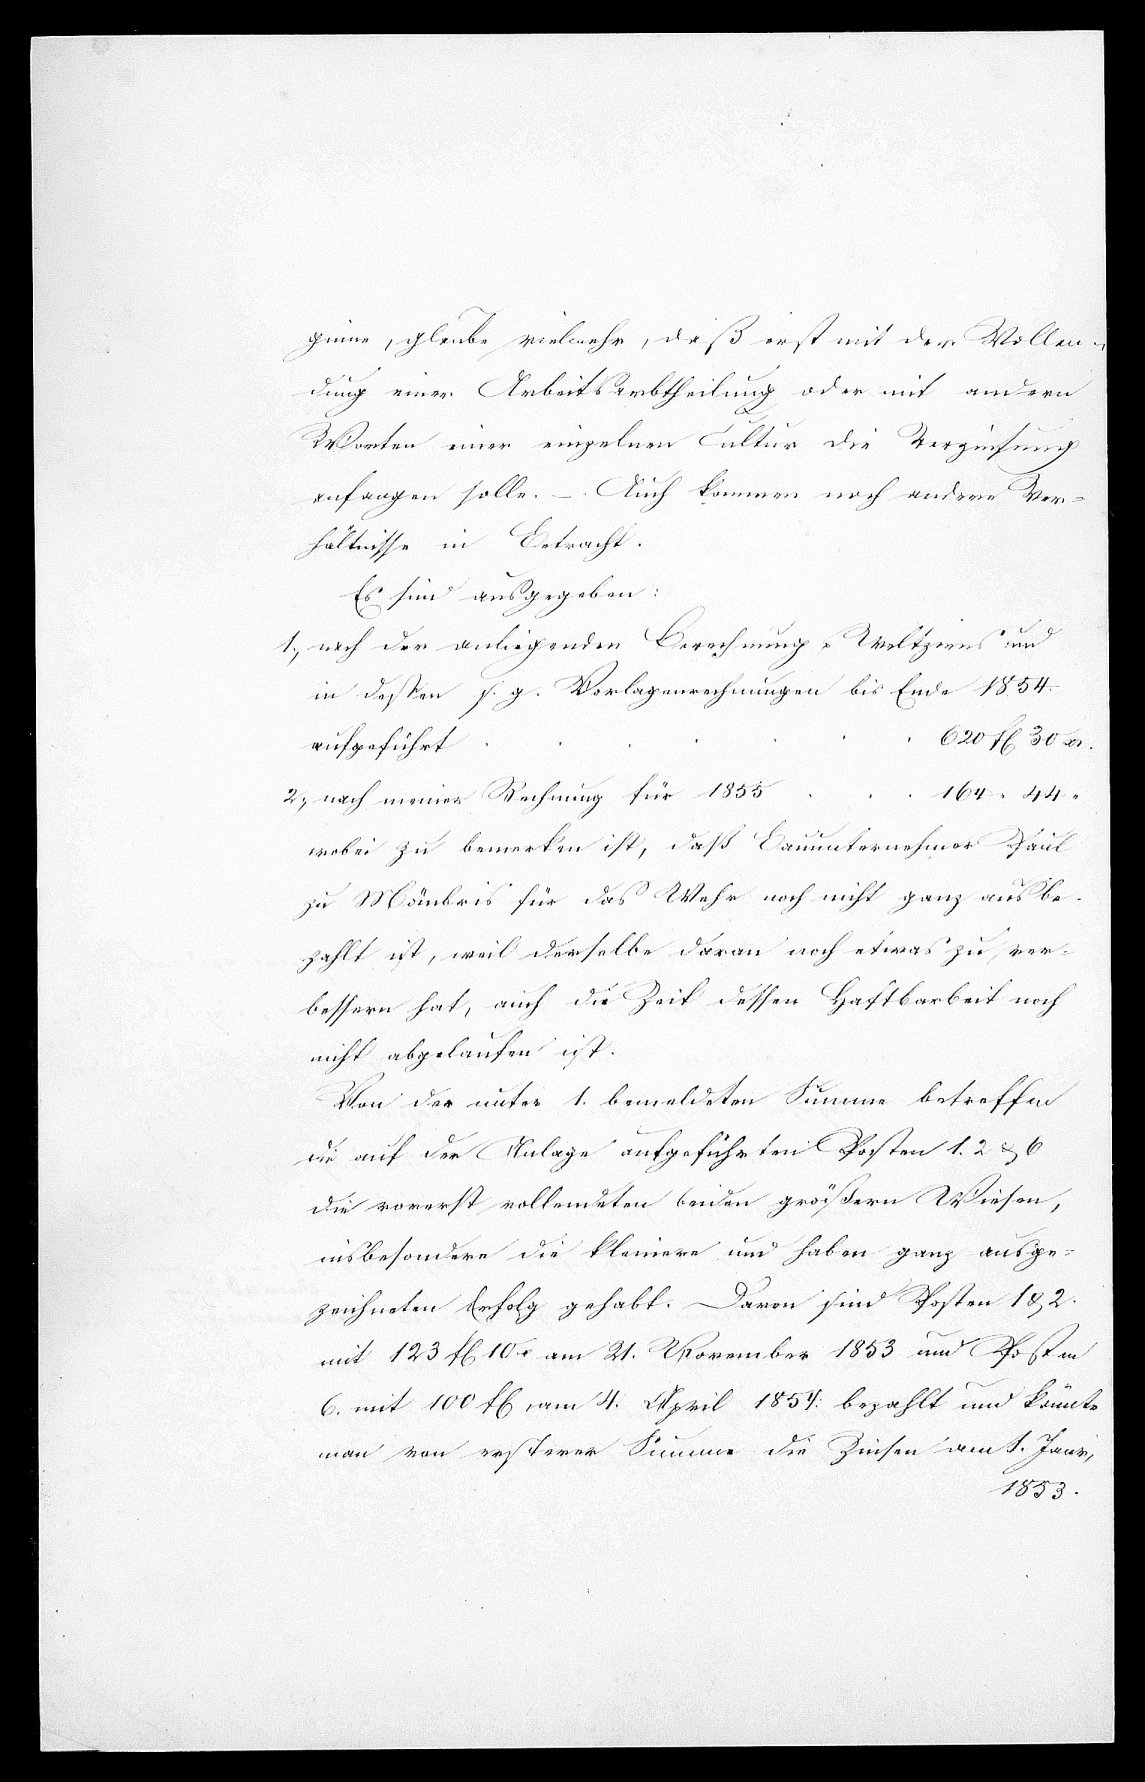 ginne, glaube vielmehr, daß erst mit der Vollen-
dung einer Arbeitsabtheilung oder mit andern
Worten einer einzelnen Cultur die Verzinsung
anfangen solle. – Auch kommen noch andere Ver-
hältnisse in Betracht.
Es sind ausgegeben:
1., nach der anliegenden Berechnung Weltziens und
in dessen s. g. Vorlagenrechnungen bis Ende 1854.
aufgeführt . . . . . . . 620 fl 30 xr.
2., nach meiner Rechnung für 1855 . . . 164 " 44 "
wobei zu bemerken ist, daß Bauunternehmer Paul
zu Mömbris für das Wehr noch nicht ganz ausbe-
zahlt ist, weil derselbe daran noch etwas zu ver-
bessern hat, auch die Zeit dessen Haftbarkeit noch
nicht abgelaufen ist.
Von der unter 1. bemeldeten Summe betreffen
die auf der Anlage aufgeführten Posten 1. 2 & 6
die vorerst vollendeten beiden größern Wiesen,
insbesondere die kleinere und haben ganz ausge-
zeichneten Erfolg gehabt. Davon sind Posten 1 & 2.
mit 123 fl 10 x am 21. November 1853 und Posten
6. mit 100 fl, am 4. April 1854. bezahlt und könnte
man von ersterer Summe die Zinsen am 1. Janr,
1853.